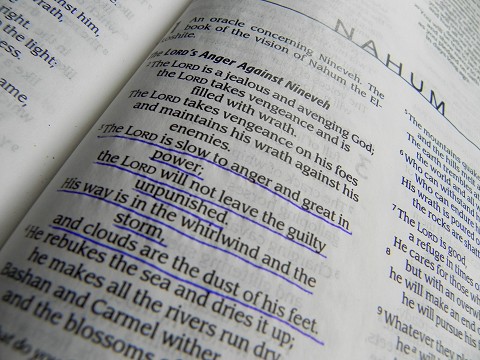 gainst him,
wrath.
right
the light;
ess.
ame,
NAHUM
An oracle concerning Nineveh. The
book of the vision of Nahum the El-
koshite.
The LORD's Anger Against Nineveh
2The LORD is a jealous and avenging God;
the LORD takes vengeance and is
filled with wrath.
The LORD takes vengeance on his foes
and maintains his wrath against his
enemies.
3The LORD is slow to anger and great in
power;
the LORD will not leave the guilty
unpunished.
His way is in the whirlwind and the
storm,
and clouds are the dust of his feet.
4He rebukes the sea and dries it up;
he makes all the rivers run dry.
Bashan and Carmel wither
and the blossoms
5The mountains quake
and the hills
The earth trem
the world and all
6Who can withstand
Who can endure
His wrath is poured
the rocks are shatt
7The LORD is good,
a refuge in times o
He cares for those wh
8 but with an overwh
he will make an end o
he will pursue his f
9Whatever they plo
he a will
What do you